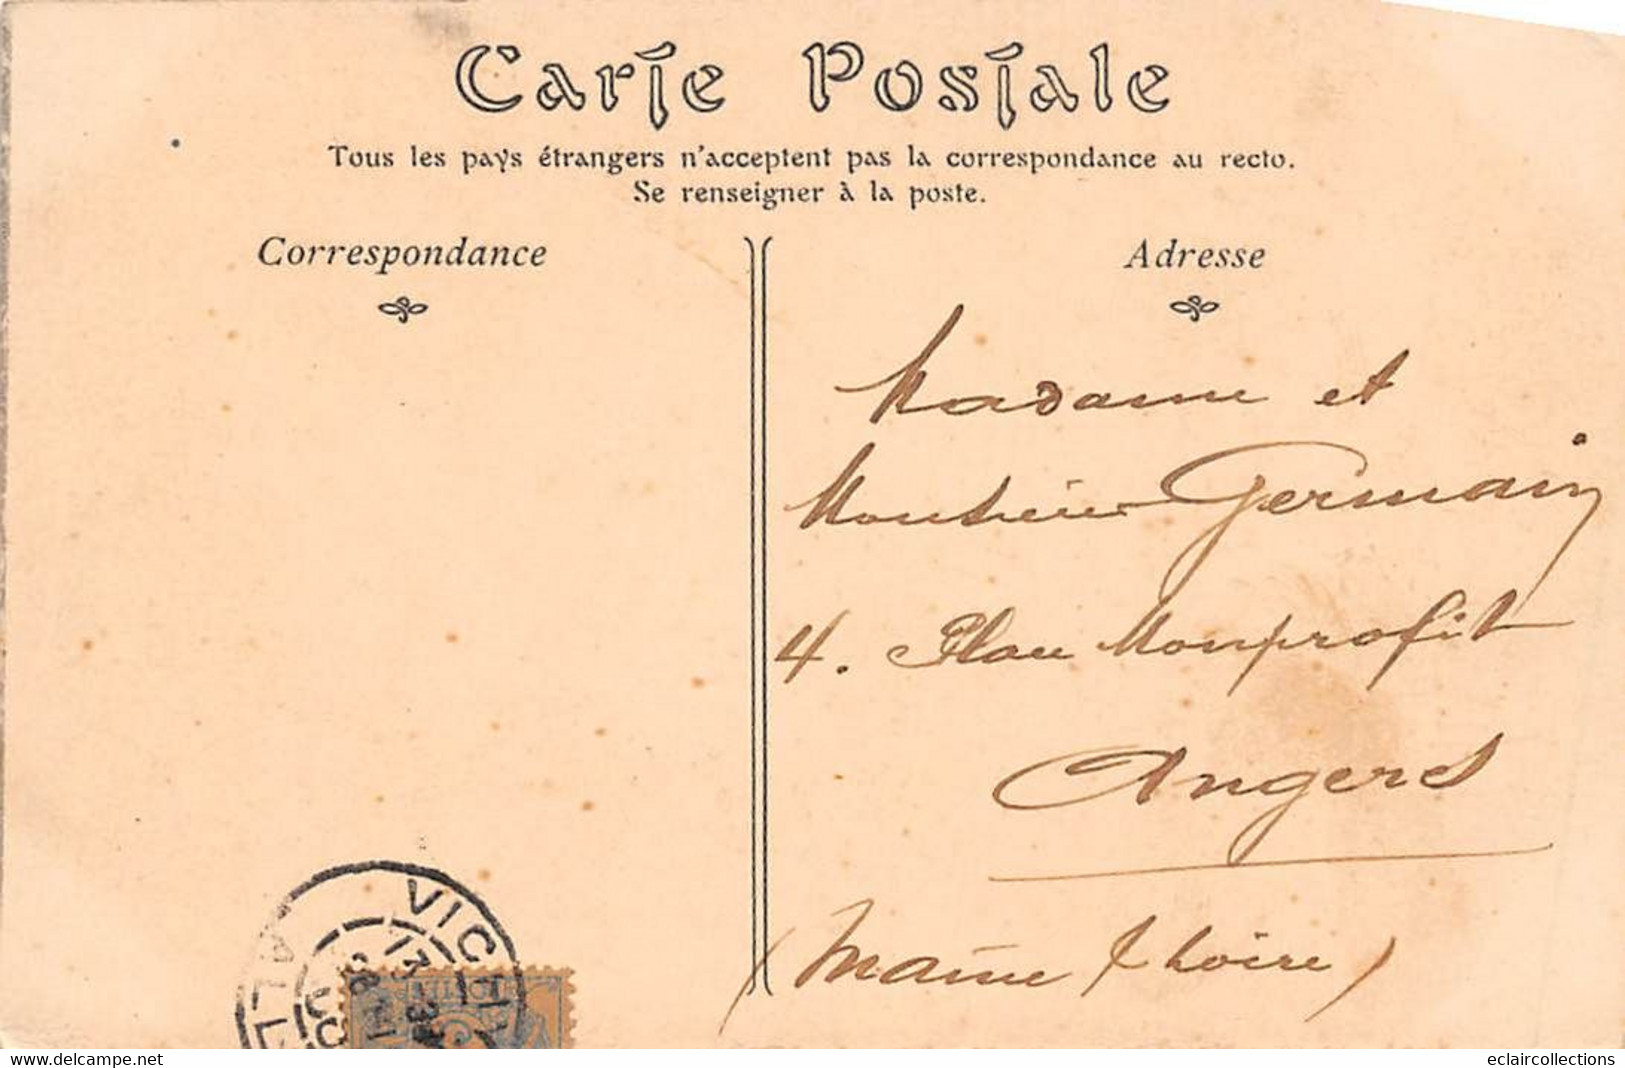 Carte Postale
Tous les pays étrangers n'acceptent pas la correspondance au recto.
Se renseigner à la poste.
Correspondance
Adresse
Madame et
Monsieur Germain
4. Place Monprofit
Angers
(Maine & Loire)
VICHY
ALLIER
eclaircollections